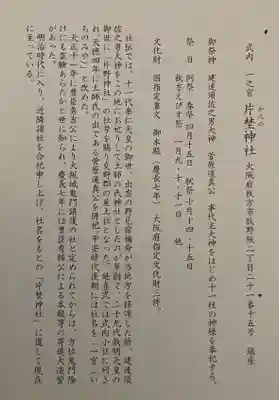 式内 一之宮 片埜神社 大阪府枚方市牧野阪二丁目二十一番十五号 鎮座
かたの
御祭神 建速須佐之男大神 菅原道真公 事代主大神をはじめ十一柱の神様を奉祀する。
祭日 例祭 春祭 四月十五日 秋祭 十月十四・十五日
枚方ゑびす祭 一月九・十・十一日 他
文化財 国指定重文 御本殿(慶長七年) 大阪府指定文化財三件。
社伝では、十一代垂仁天皇の御世、出雲の野見宿禰命が当地方を拝領した折、建速須
佐之男大神をこの地にお祀りして土師の氏神社としたのが草創で、二十九代欽明天皇の
御世に「片野神社」の社号を賜り交野郡の産土社となった。延喜式では式内小社に列さ
れ、天徳四年に土師氏の出である菅原道真公を併祀、平安時代後期には社名を「一宮(い
ちのみや)」と改めた。
天正十一年、豊臣秀吉公により大阪城鬼門鎮護の社と定められてからは、方位鬼門除
けにも霊験あらたかと世に知られ、慶長七年には豊臣秀頼公による本殿等の再築大造営
があった。
明治時代に入り、近隣諸社を合祀申し上げ、社名をもとの「片埜神社」に復して現在
に至っている。